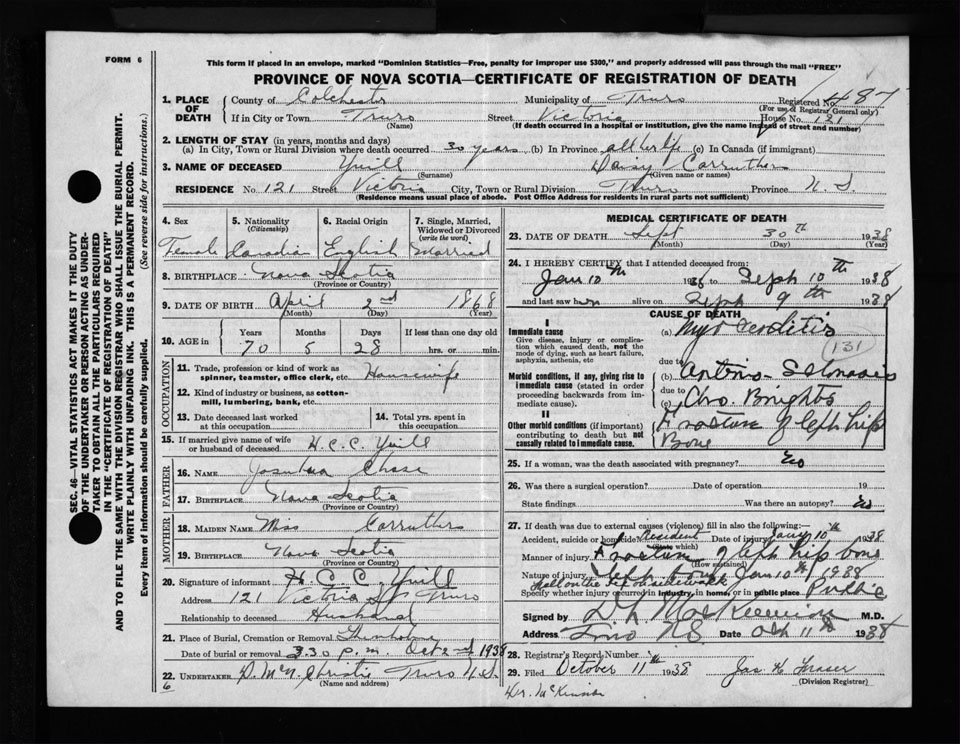 FORM 6
This form if placed in an envelope, marked "Dominion Statistics—Free, penalty for improper use $300," and properly addressed will pass through the mail "FREE"
PROVINCE OF NOVA SCOTIA—CERTIFICATE OF REGISTRATION OF DEATH
SEC. 46—VITAL STATISTICS ACT MAKES IT THE DUTY
OF THE UNDERTAKER OR PERSON ACTING AS UNDER-
TAKER TO OBTAIN ALL THE PARTICULARS REQUIRED
IN THE "CERTIFICATE OF REGISTRATION OF DEATH"
AND TO FILE THE SAME WITH THE DIVISION REGISTRAR WHO SHALL ISSUE THE BURIAL PERMIT.
WRITE PLAINLY WITH UNFADING INK. THIS IS A PERMANENT RECORD.
Every item of information should be carefully supplied. (See reverse side for instructions.)
1. PLACE OF DEATH County of Colchester Municipality of Truro Registered No. 487
(For use of Registrar General only)
If in City or Town Truro Street Victoria House No. 121
(Name) (If death occurred in a hospital or institution, give the name instead of street and number)
2. LENGTH OF STAY (in years, months and days)
(a) In City, Town or Rural Division where death occurred 30 years (b) In Province all her life (c) In Canada (if immigrant)
3. NAME OF DECEASED Yuill Daisy Carruthers
(Surname) (Given name or names)
RESIDENCE No. 121 Street Victoria City, Town or Rural Division Truro Province N.S.
(Residence means usual place of abode. Post Office Address for residents in rural parts not sufficient)
4. Sex 5. Nationality 6. Racial Origin 7. Single, Married,
(Citizenship) Widowed or Divorced
(write the word)
Female Canadian English Married
8. BIRTHPLACE Nova Scotia
(Province or Country)
9. DATE OF BIRTH April 2nd 1868
(Month) (Day) (Year)
10. AGE in Years Months Days If less than one day old
70 5 28 hrs. or min.
OCCUPATION
11. Trade, profession or kind of work as
spinner, teamster, office clerk, etc. Housewife
12. Kind of industry or business, as cotton-
mill, lumbering, bank, etc.
13. Date deceased last worked at this occupation 14. Total yrs. spent in this occupation
15. If married give name of wife
or husband of deceased H.C.C. Yuill
FATHER
16. NAME Chase
17. BIRTHPLACE Nova Scotia
(Province or Country)
MOTHER
18. MAIDEN NAME Miss Carruthers
19. BIRTHPLACE Nova Scotia
(Province or Country)
20. Signature of informant H.C.C. Yuill
Address 121 Victoria St Truro
Relationship to deceased Husband
21. Place of Burial, Cremation or Removal
Date of burial or removal 3.30 p.m. Oct 2nd 1938
22. UNDERTAKER Christie Truro N.S.
(Name and address)
6
MEDICAL CERTIFICATE OF DEATH
23. DATE OF DEATH Sept 30th 1938
(Month) (Day) (Year)
24. I HEREBY CERTIFY that I attended deceased from:
Jan 10th 1938 to Sept 10th 1938
and last saw her alive on Sept 9th 1938
CAUSE OF DEATH
I
Immediate cause (a)
Give disease, injury or complica-
tion which caused death, not the
mode of dying, such as heart failure,
asphyxia, asthenia, etc
131
due to
Morbid conditions, if any, giving rise to
immediate cause (stated in order
proceeding backwards from im-
mediate cause).
(b)
due to
(c) Chro. Brights
II
Other morbid conditions (if important)
contributing to death but not
causally related to immediate cause.
Fracture of left hip
Bone
25. If a woman, was the death associated with pregnancy? No
26. Was there a surgical operation? Date of operation 19
State findings Was there an autopsy? No
27. If death was due to external causes (violence) fill in also the following:—
Accident, suicide or homicide? Accident Date of injury Jan 10th 1938
(State which)
Manner of injury Fracture of left hip bone
(How sustained)
Nature of injury Jan 10th 1938
Fell on the sidewalk
Specify whether injury occurred in industry, in home, or in public place Public
Signed by M.D.
Address Truro NS Date Oct 11th 1938
28. Registrar's Record Number
29. Filed October 11th 1938 Jas H Fraser
(Division Registrar)
Dr. McKinnon